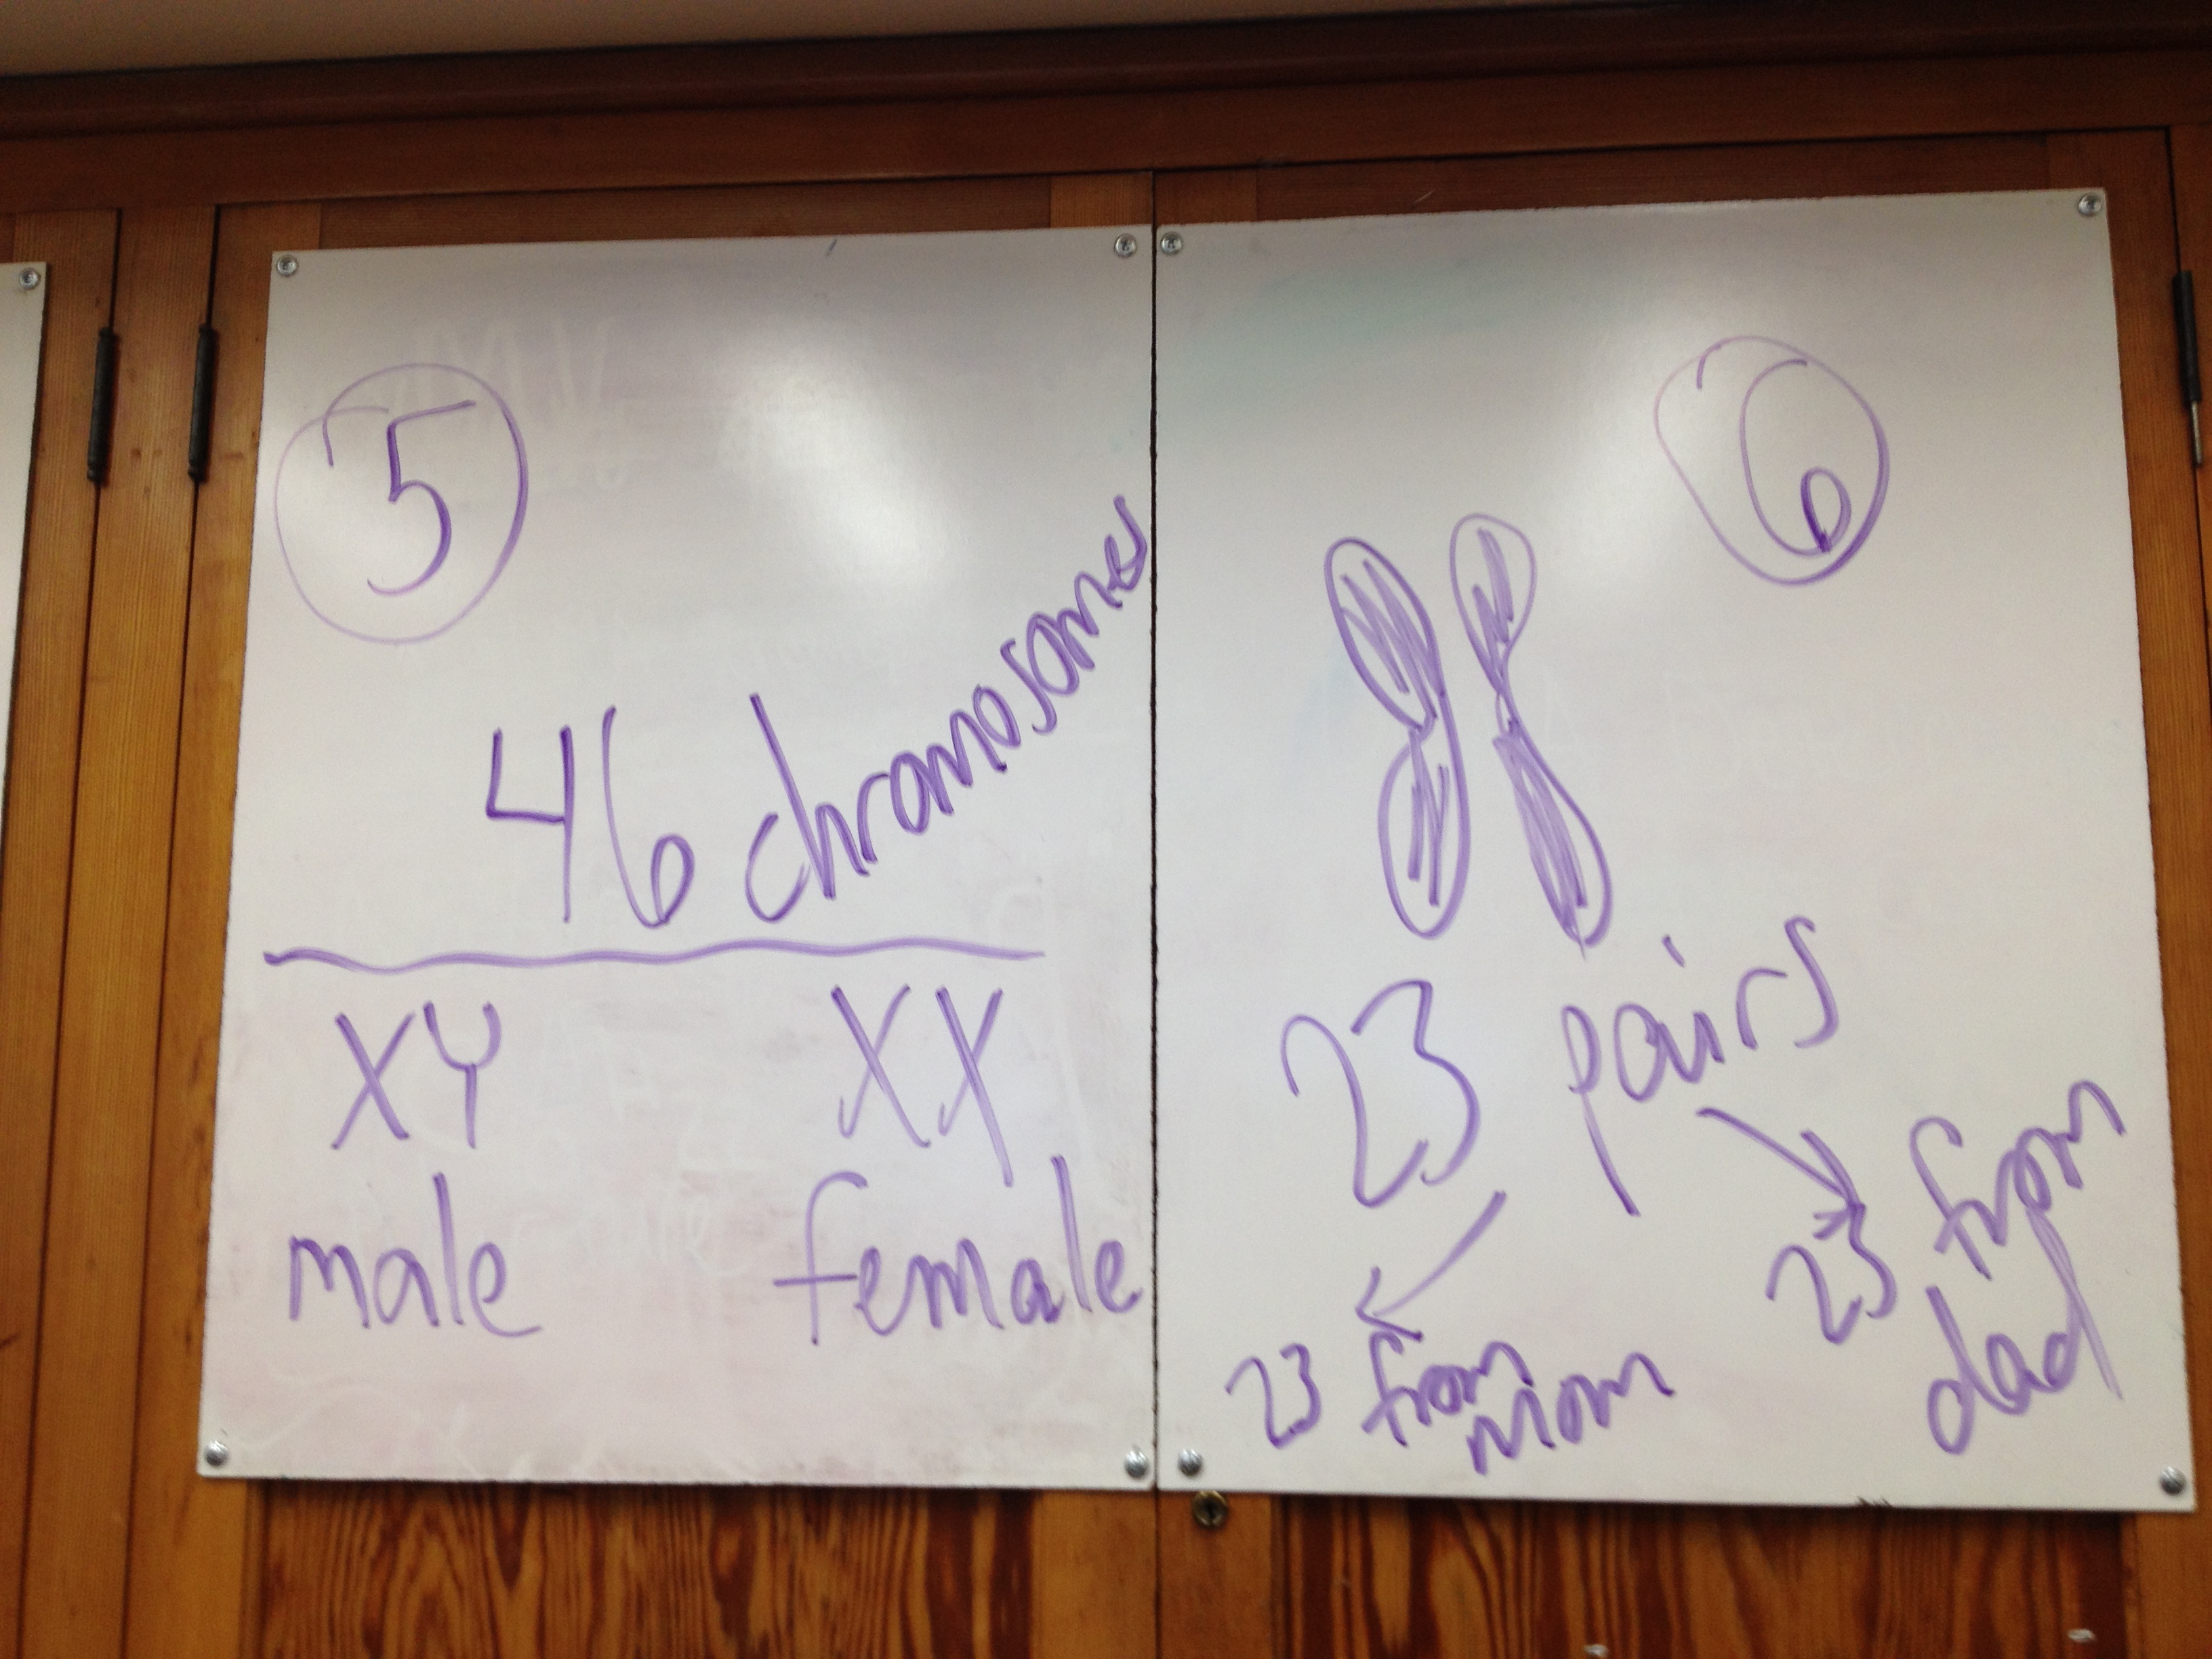 5
46 chromosomes
XY XX
male female
6
23 pairs
23 from
mom
23 from
dad